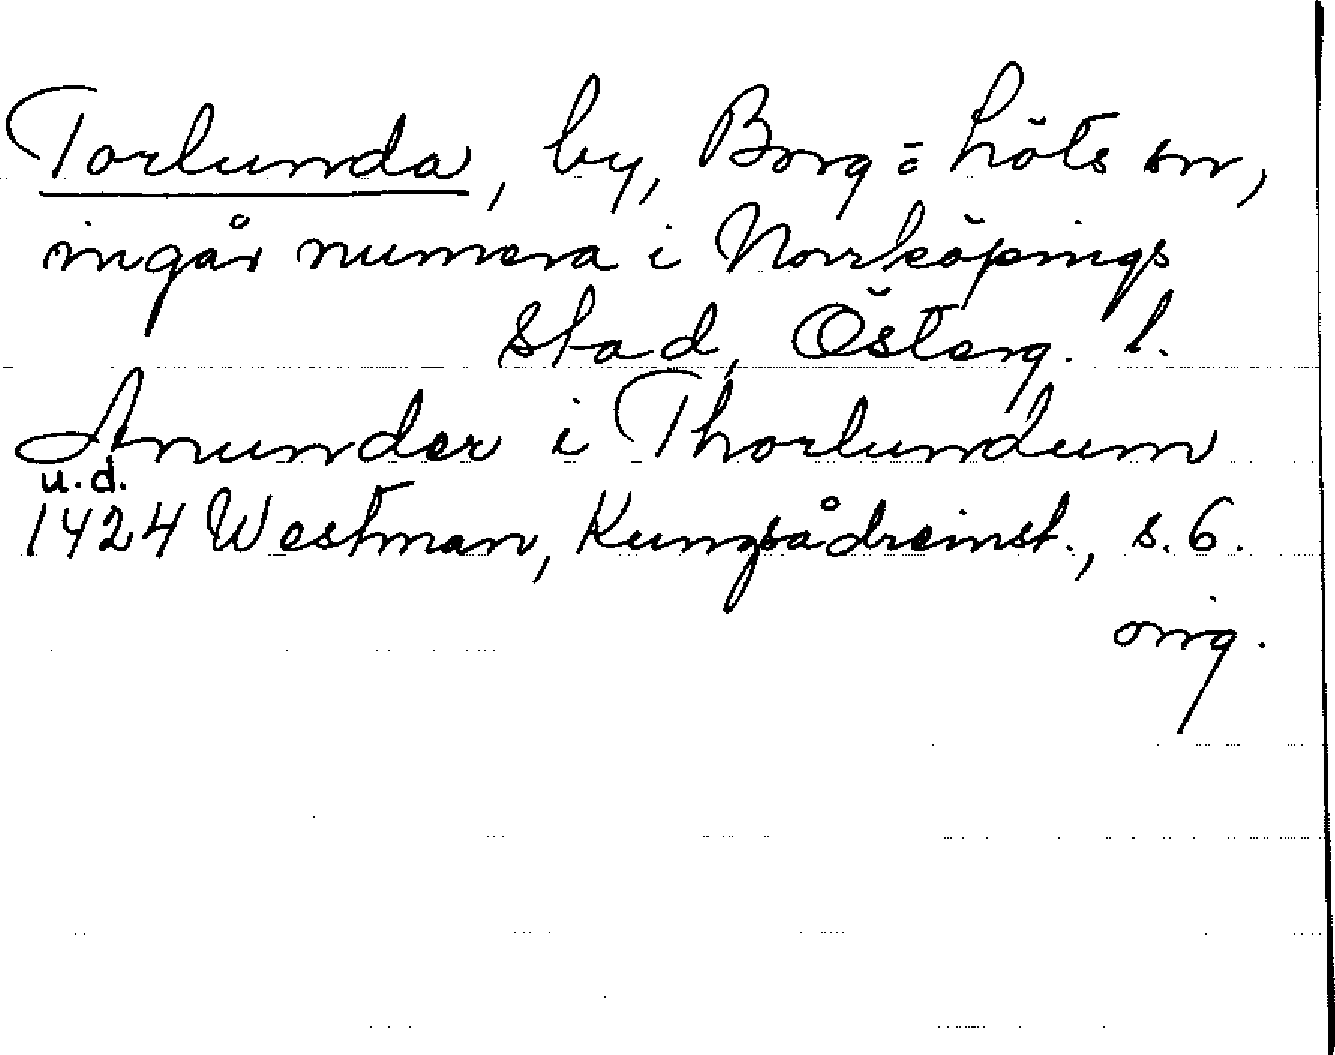 Torlunda, by, Borg = Löts snr,
ingår numera i Norrköpings
stad, Österg. l.
Anunder i Thorlundum
u.d.
1424 Westman, Kungsådreinst., s. 6.
orig.